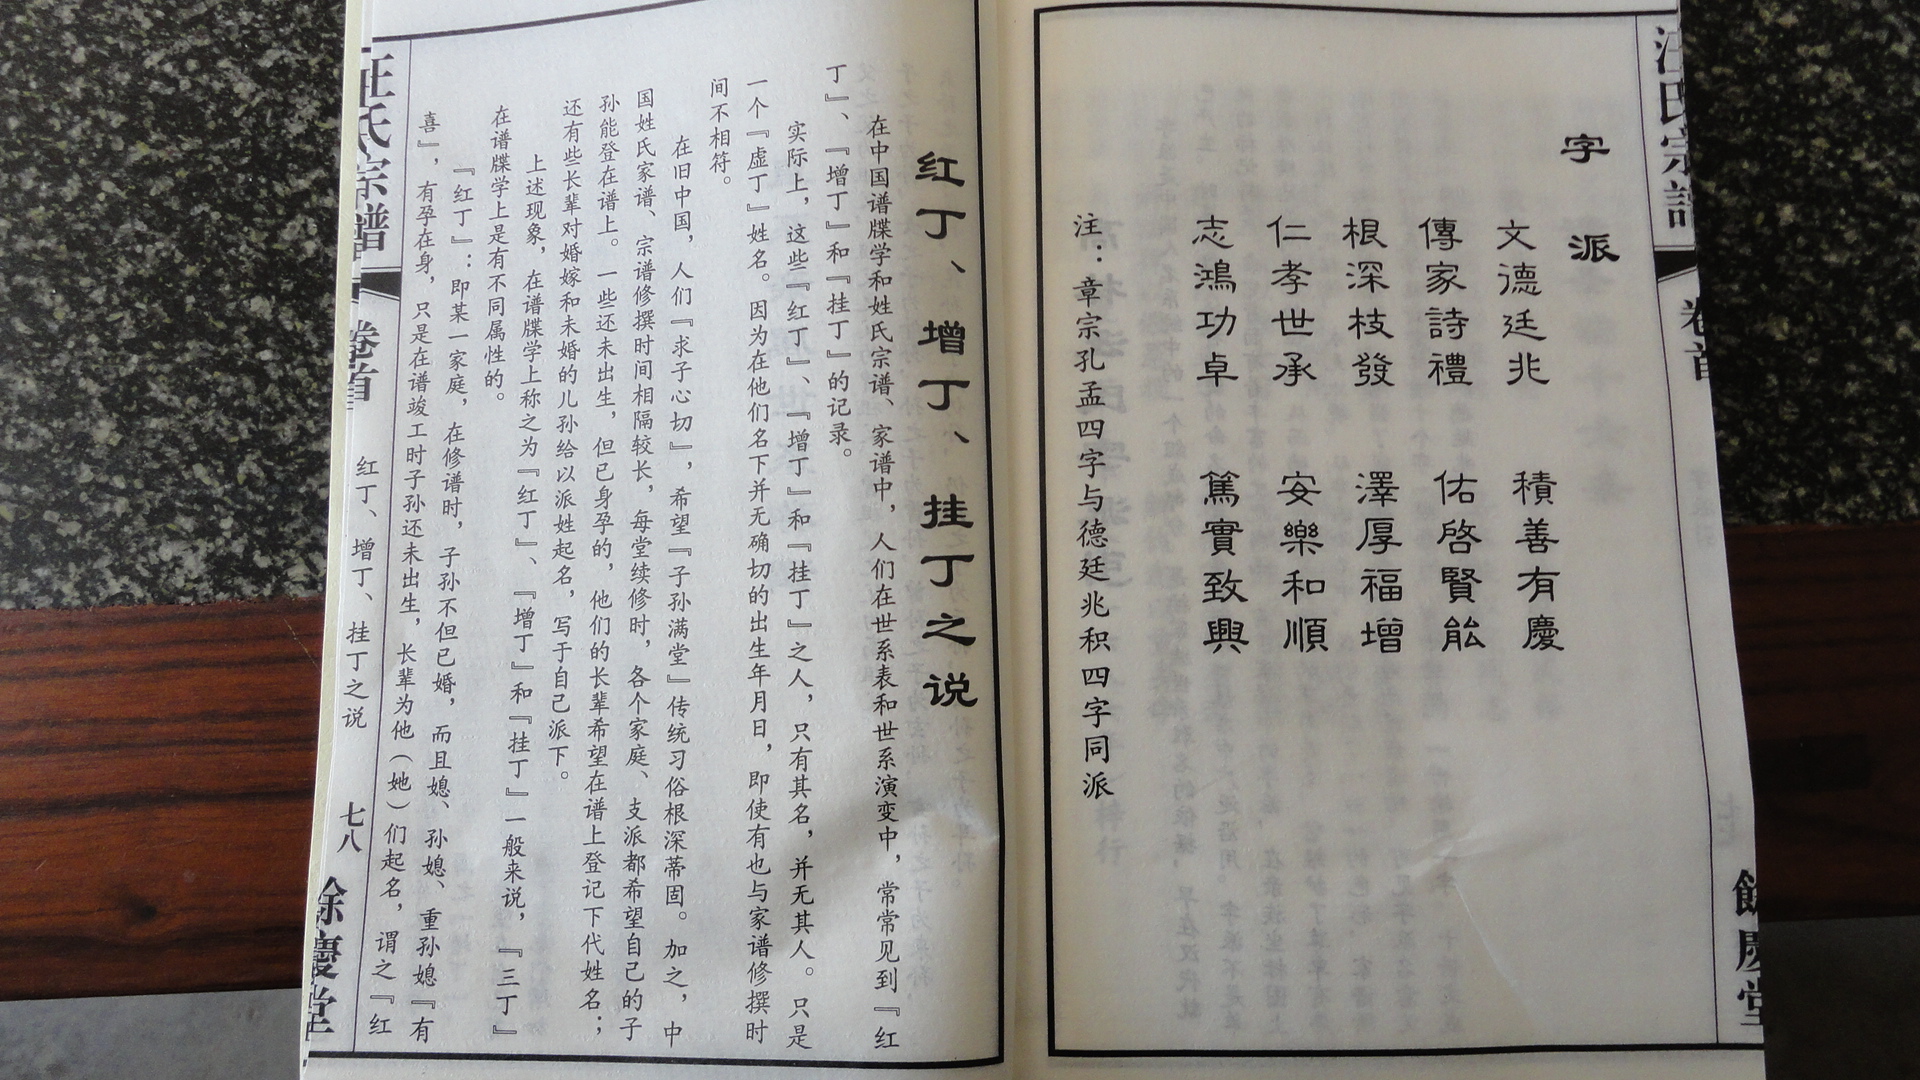 汪氏宗譜
卷首
餘慶堂
字派
文德廷兆 積善有慶
傳家詩禮 佑啓賢能
根深枝發 澤厚福增
仁孝世承 安樂和順
志鴻功卓 篤實致興
注：章宗孔孟四字与德廷兆积四字同派
红丁、增丁、挂丁之说
在中国谱牒学和姓氏宗谱、家谱中，人们在世系表和世系演变中，常常见到『红
丁』、『增丁』和『挂丁』的记录。
实际上，这些『红丁』、『增丁』和『挂丁』之人，只有其名，并无其人。只是
一个『虚丁』姓名。因为在他们名下并无确切的出生年月日，即使有也与家谱修撰时
间不相符。
在旧中国，人们『求子心切』，希望『子孙满堂』传统习俗根深蒂固。加之，中
国姓氏家谱、宗谱修撰时间相隔较长，每堂续修时，各个家庭、支派都希望自己的子
孙能登在谱上。一些还未出生，但已身孕的，他们的长辈希望在谱上登记下代姓名；
还有些长辈对婚嫁和未婚的儿孙给以派姓起名，写于自己派下。
上述现象，在谱牒学上称之为『红丁』、『增丁』和『挂丁』一般来说，『三丁』
在谱牒学上是有不同属性的。
『红丁』：即某一家庭，在修谱时，子孙不但已婚，而且媳、孙媳、重孙媳『有
喜』，有孕在身，只是在谱竣工时子孙还未出生，长辈为他（她）们起名，谓之『红
汪氏宗譜
卷首
红丁、增丁、挂丁之说
七八
餘慶堂